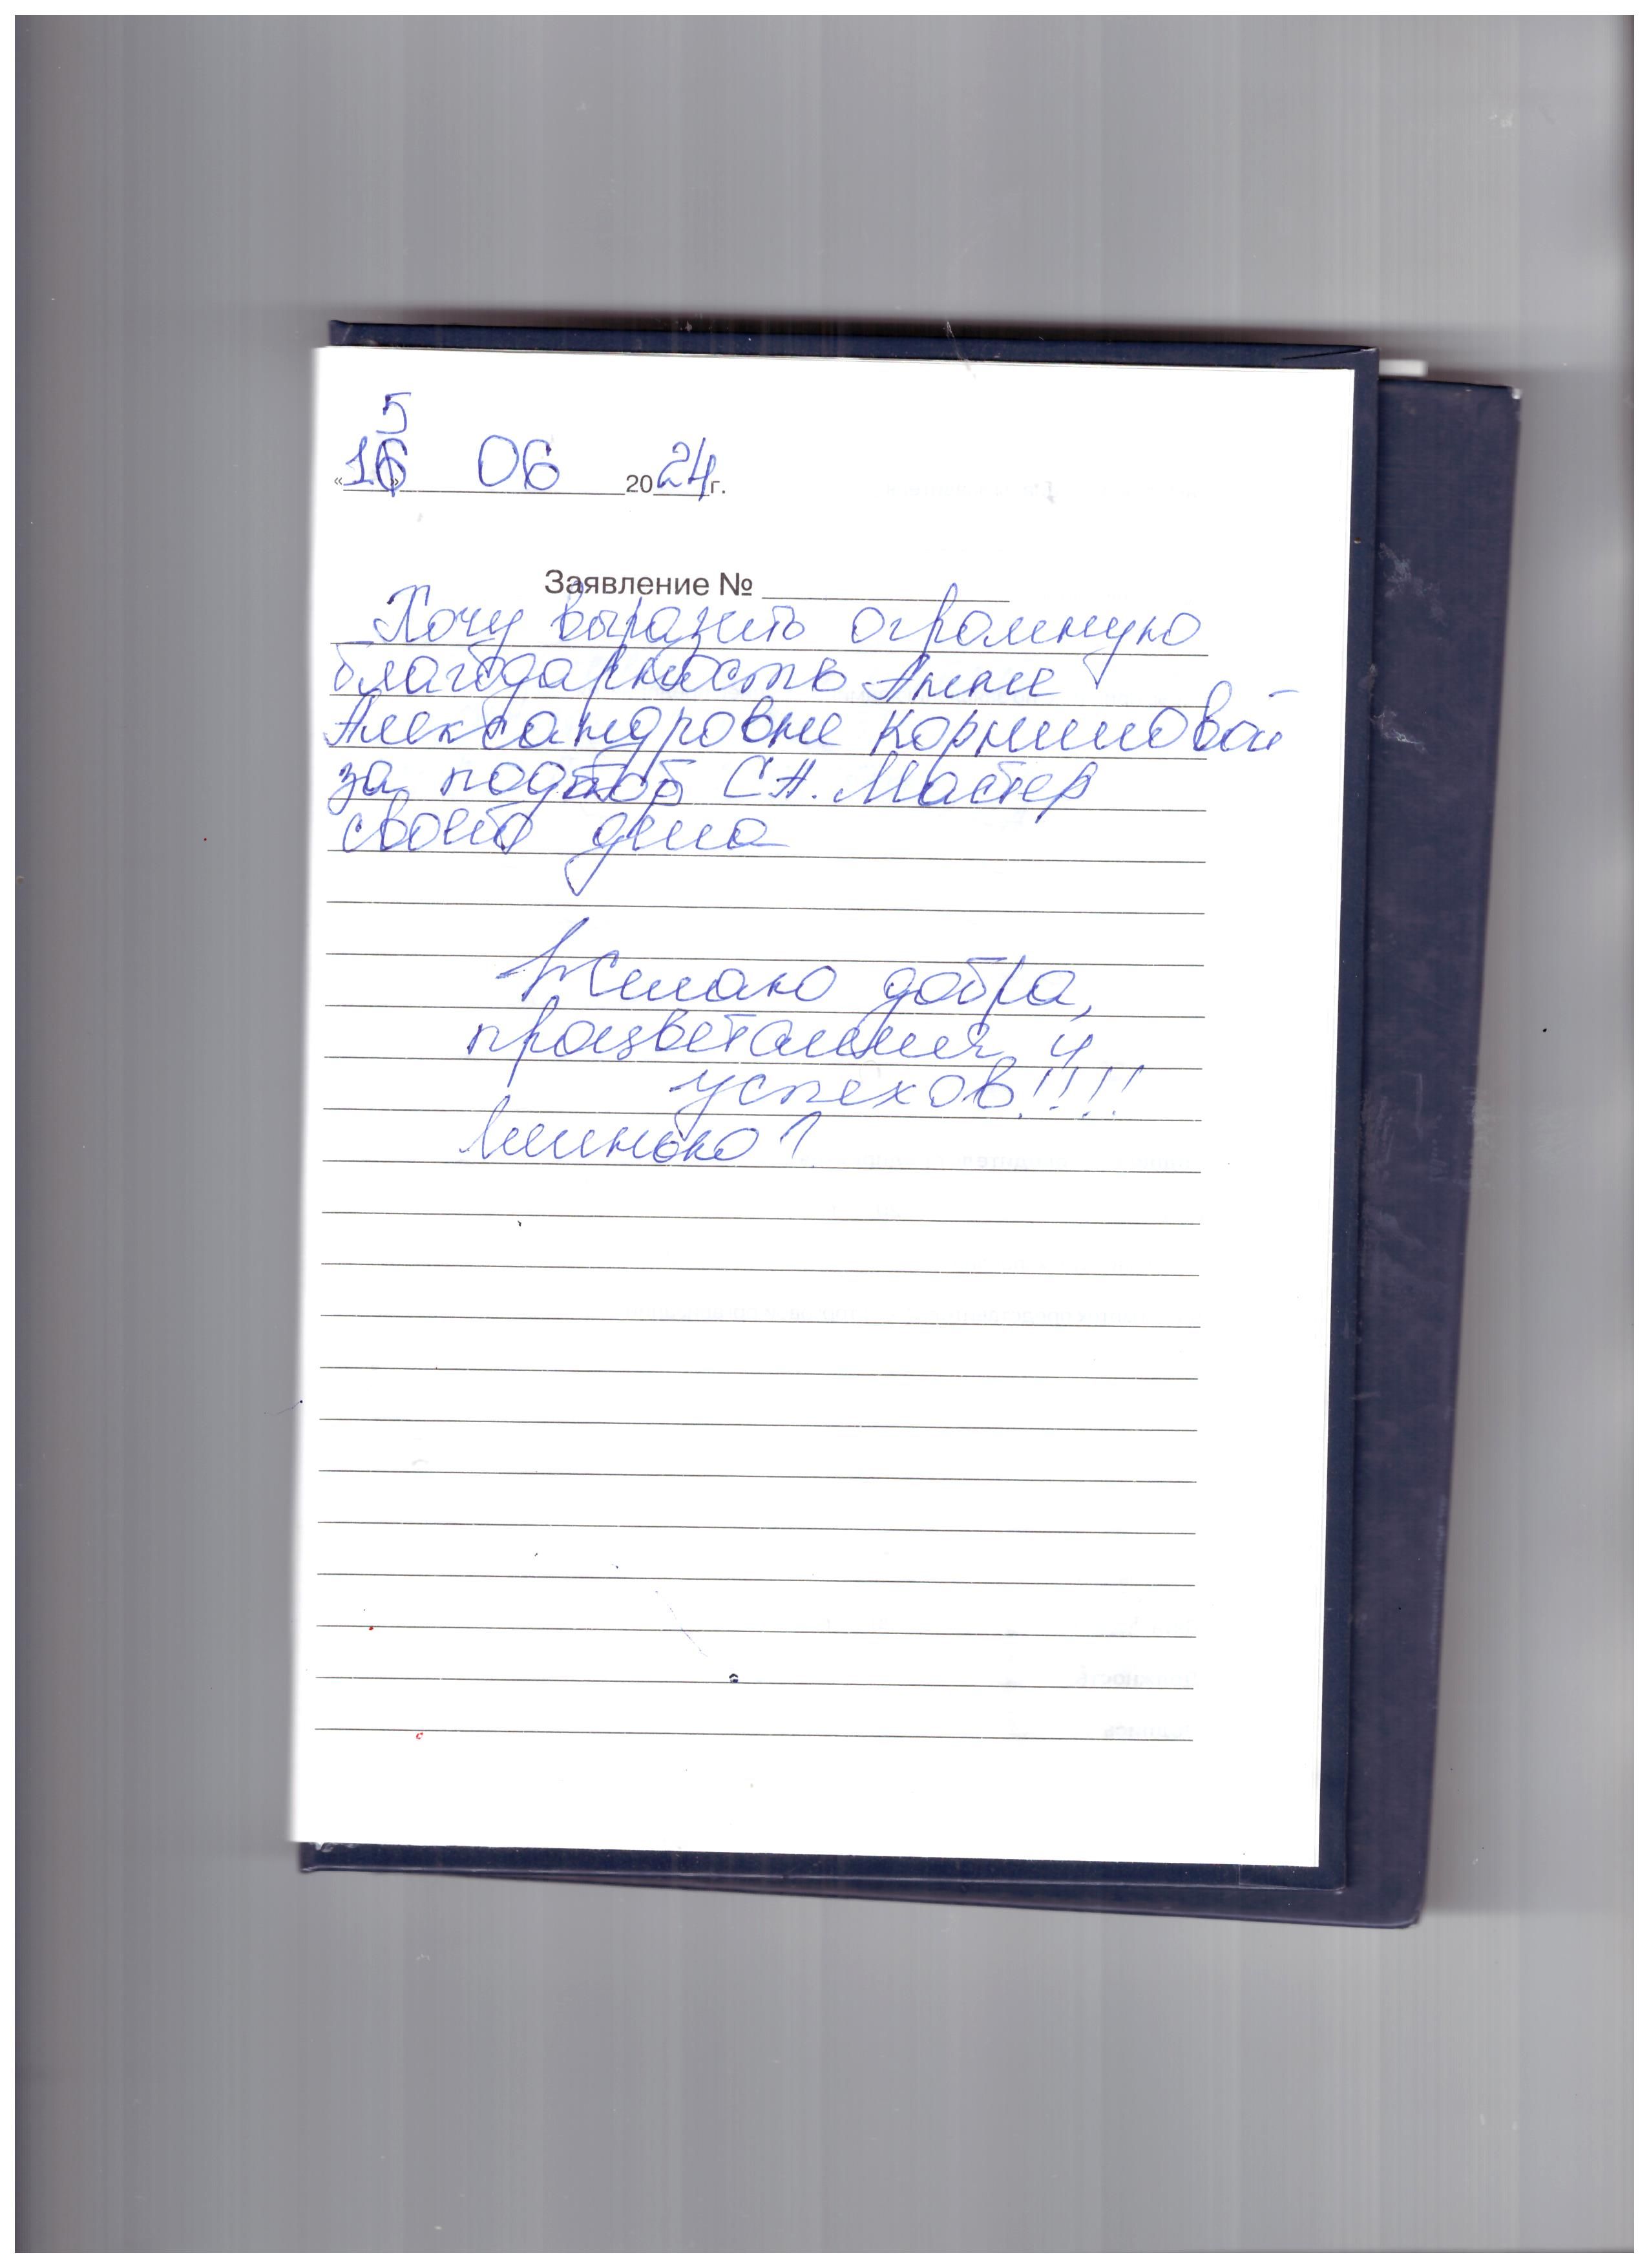 5
«16» 06 2024г.
Заявление №
Хочу выразить огромную
благодарность Анне
Александровне Корниловой
за подбор СА. Мастер
своего дела
Желаю добра,
процветания и
успехов!!!!